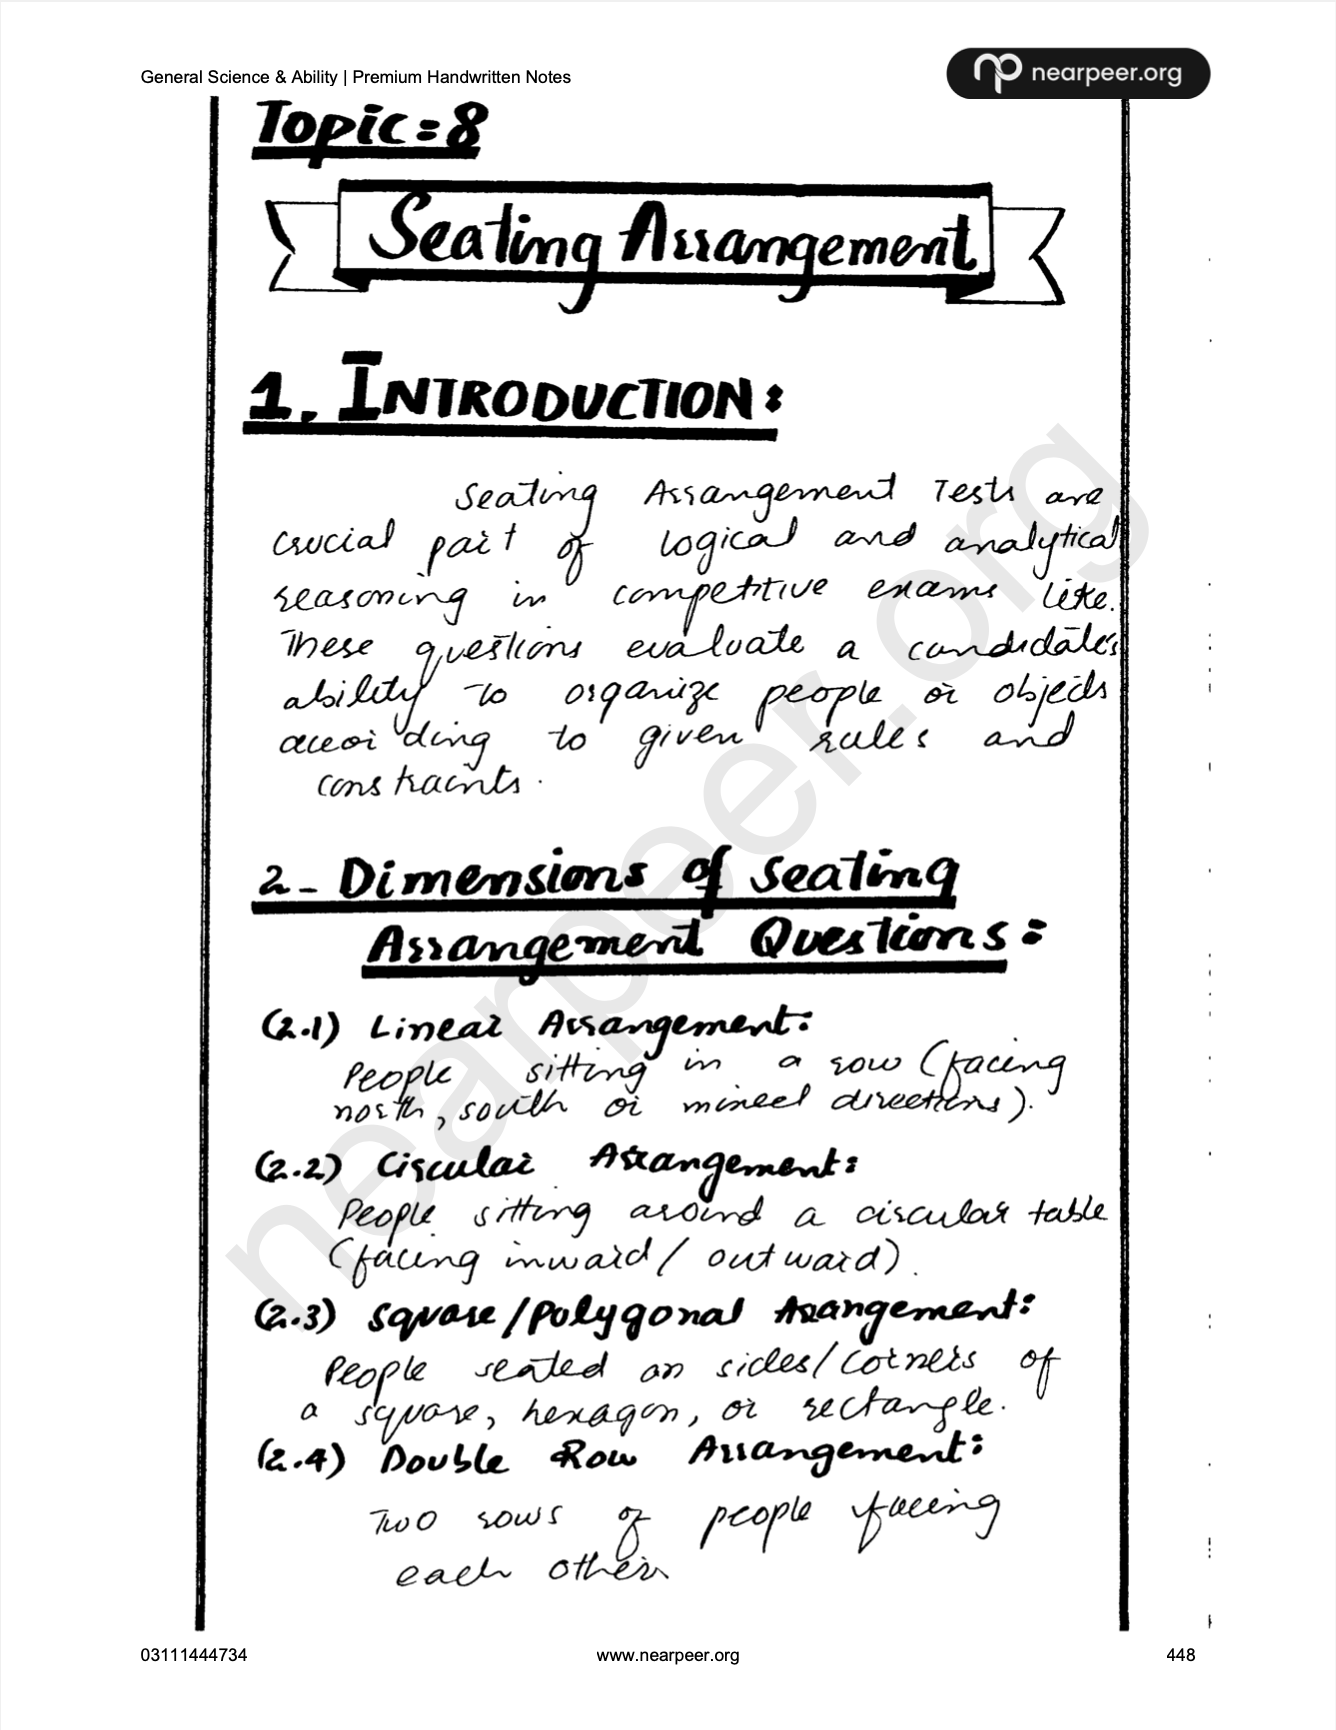 General Science & Ability | Premium Handwritten Notes
nearpeer.org
Topic=8
Seating Arrangement
1. INTRODUCTION:
Seating Arrangement Tests are
crucial part of logical and analytical
reasoning in competitive exams like.
These questions evaluate a candidate's
ability to organize people or objects
according to given rules and
constraints.
2- Dimensions of Seating
Arrangement Questions:
(2.1) Linear Arrangement:
People sitting in a row (facing
north, south or mixed directions).
(2.2) Circular Arrangement:
People sitting around a circular table
(facing inward/ outward).
(2.3) Square/Polygonal Arrangement:
People seated on sides/corners of
a square, hexagon, or rectangle.
(2.4) Double Row Arrangement:
Two rows of people facing
each other.
nearpeer.org
03111444734 www.nearpeer.org 448